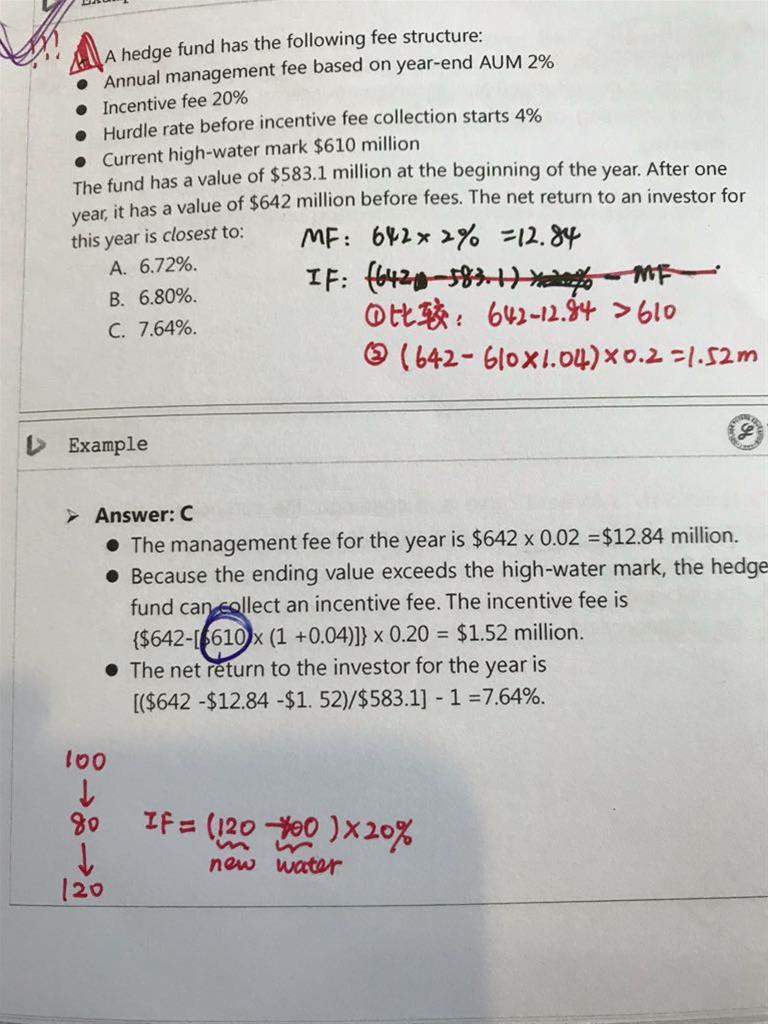 !!!
A hedge fund has the following fee structure:
● Annual management fee based on year-end AUM 2%
● Incentive fee 20%
● Hurdle rate before incentive fee collection starts 4%
● Current high-water mark $610 million
The fund has a value of $583.1 million at the beginning of the year. After one
year, it has a value of $642 million before fees. The net return to an investor for
this year is closest to:
MF: 642 × 2% = 12.84
A. 6.72%.
IF: (642 - 583.1) × 20% - MF
B. 6.80%.
①比较: 642-12.84 > 610
C. 7.64%.
② (642 - 610×1.04) × 0.2 = 1.52m
Example
➢ Answer: C
● The management fee for the year is $642 x 0.02 =$12.84 million.
● Because the ending value exceeds the high-water mark, the hedge
fund can collect an incentive fee. The incentive fee is
{$642-[$610 x (1 +0.04)]} x 0.20 = $1.52 million.
● The net return to the investor for the year is
[($642 -$12.84 -$1. 52)/$583.1] - 1 =7.64%.
100
↓
80 IF = (120 - 100) × 20%
↓ new water
120